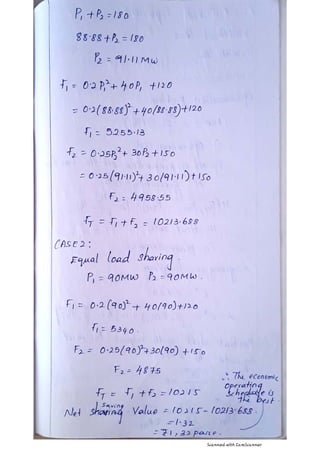 P₁ + P₂ = 180
88.88 + P₂ = 180
P₂ = 91.11 MW
F₁ = 0.2 P₁² + 40 P₁ + 120
= 0.2(88.88)² + 40(88.88) + 120
F₁ = 5255.13
F₂ = 0.25 P₂² + 30 P₂ + 150
= 0.25(91.11)² + 30(91.11) + 150
F₂ = 4958.55
F_T = F₁ + F₂ = 10213.688
CASE 2:
Equal load sharing
P₁ = 90MW P₂ = 90MW.
F₁ = 0.2(90)² + 40(90) + 120
F₁ = 5340.
F₂ = 0.25(90)² + 30(90) + 150
F₂ = 4875
F_T = F₁ + F₂ = 10215
∴ The economic
operating
schedule is
the best
saving
Net sharing Value = 10215 - 10213.688.
= 1.32
= ₹1, 32 paise.
Scanned with CamScanner